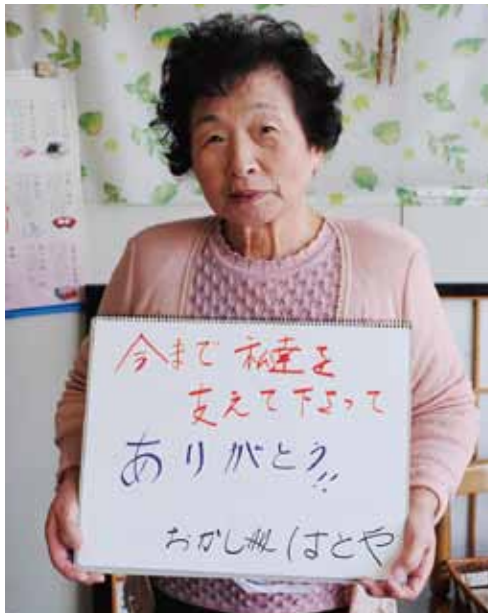 今まで私達を
支えて下さって
ありがとう!!
おかし処 はとや